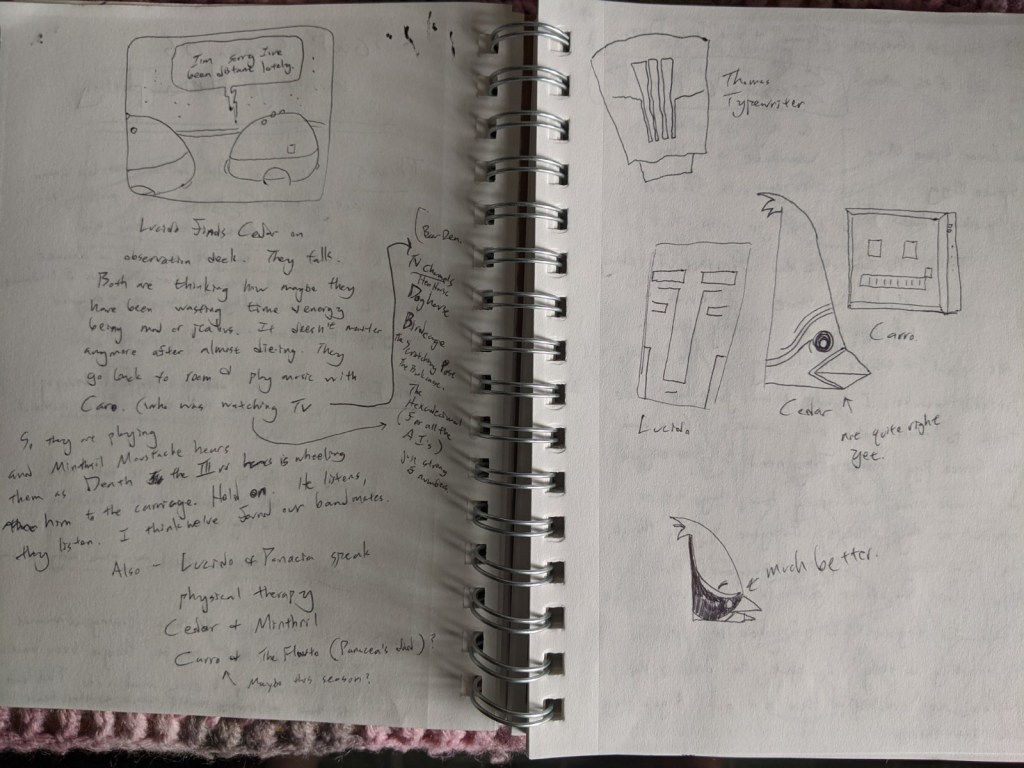 I'm sorry I've
been distant lately.
Lucido finds Cedar on
observation deck. They talk.
Both are thinking how maybe they
have been wasting time & energy
being mad or jealous. It doesn't matter
anymore after almost dieing. They
go back to room & play music with
Caro. (who was watching TV
So, they are playing
and Minthril Moustache hears
them as Death the III or is wheeling
him to the carriage. Hold on. He listens,
they listen. I think we've found our bandmates.
Also - Lucido & Panacia speak
physical therapy
Cedar + Minthril
Carro + The (Panacea's dad)?
Maybe this season?
Bear Den
TV channels
Dog bark
Birdcage
The Scratching Post
The
(5 for all the
A.I.s)
string
& number
Thomas
Typewriter
Lucido
Cedar
Carro
not quite right
yet.
much better.